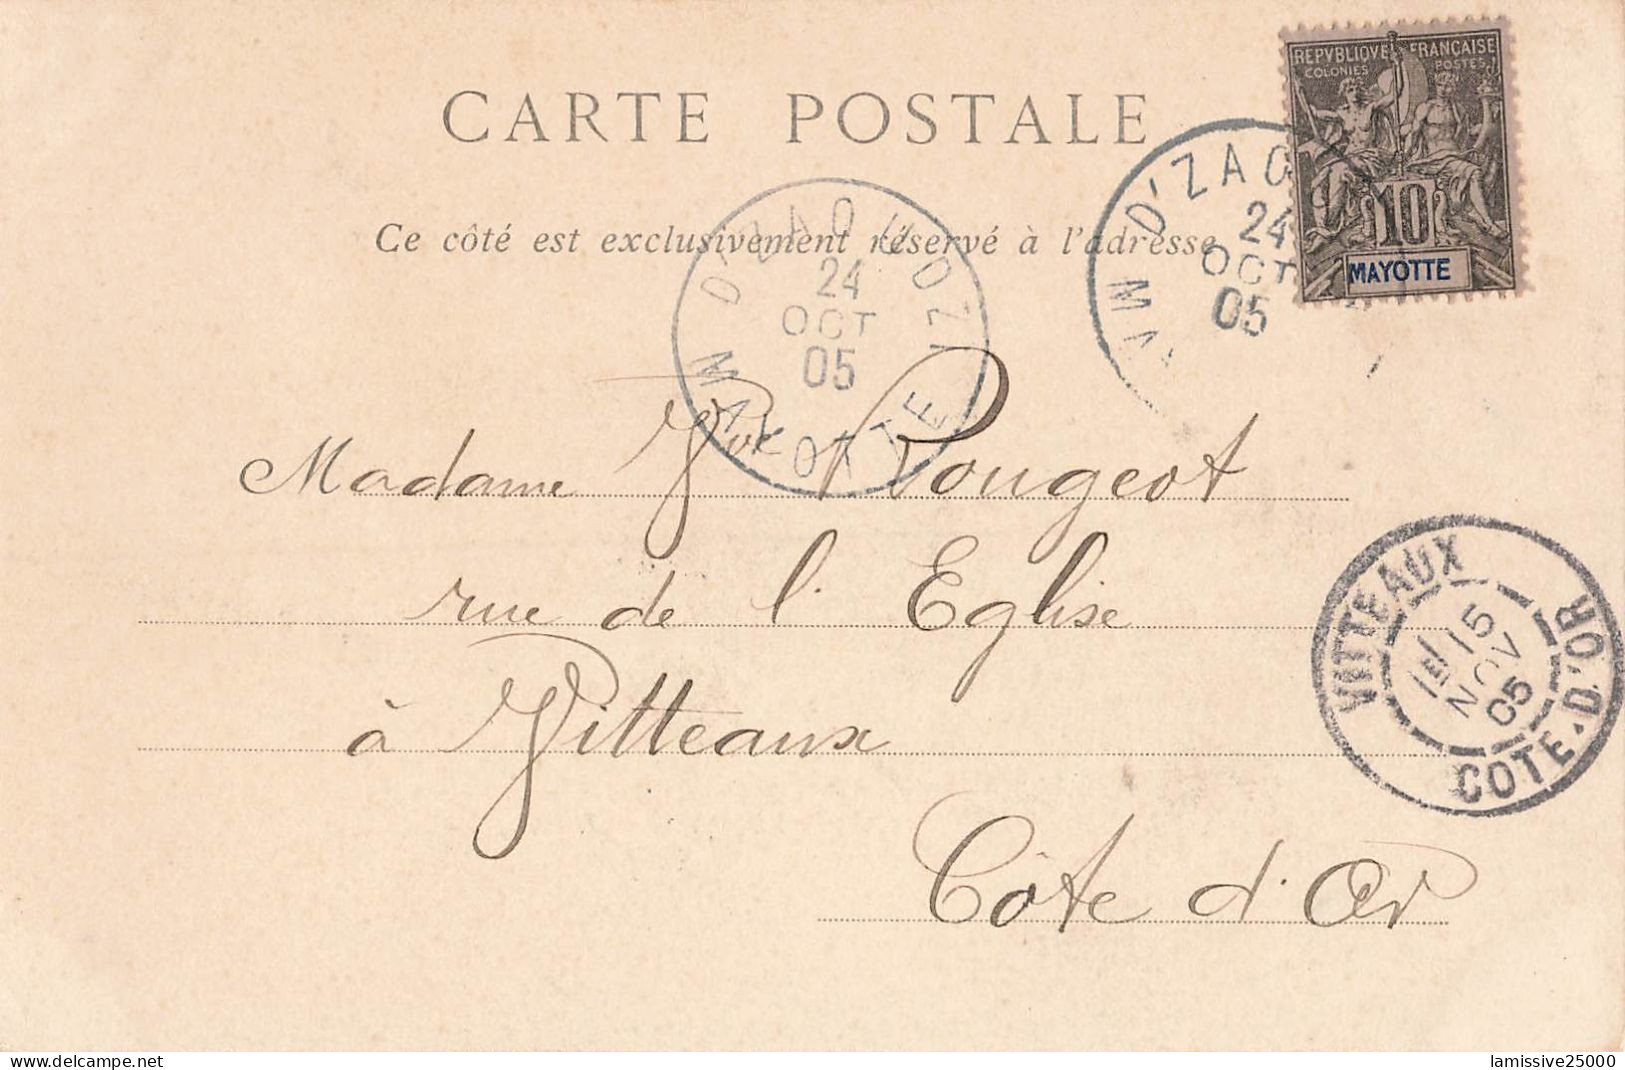 REPVBLIQVE FRANÇAISE
COLONIES POSTES
10
MAYOTTE
CARTE POSTALE
Ce côté est exclusivement réservé à l'adresse
D'ZAOUDZI
24
OCT
05
MAYOTTE
D'ZAO
24
OCT
05
MAY
Madame Vve Rougeot
rue de l'Eglise
à Vitteaux
Côte d'Or
VITTEAUX
1E 15
NOV
05
COTE-D'OR
delcampe.net
lamissive25000